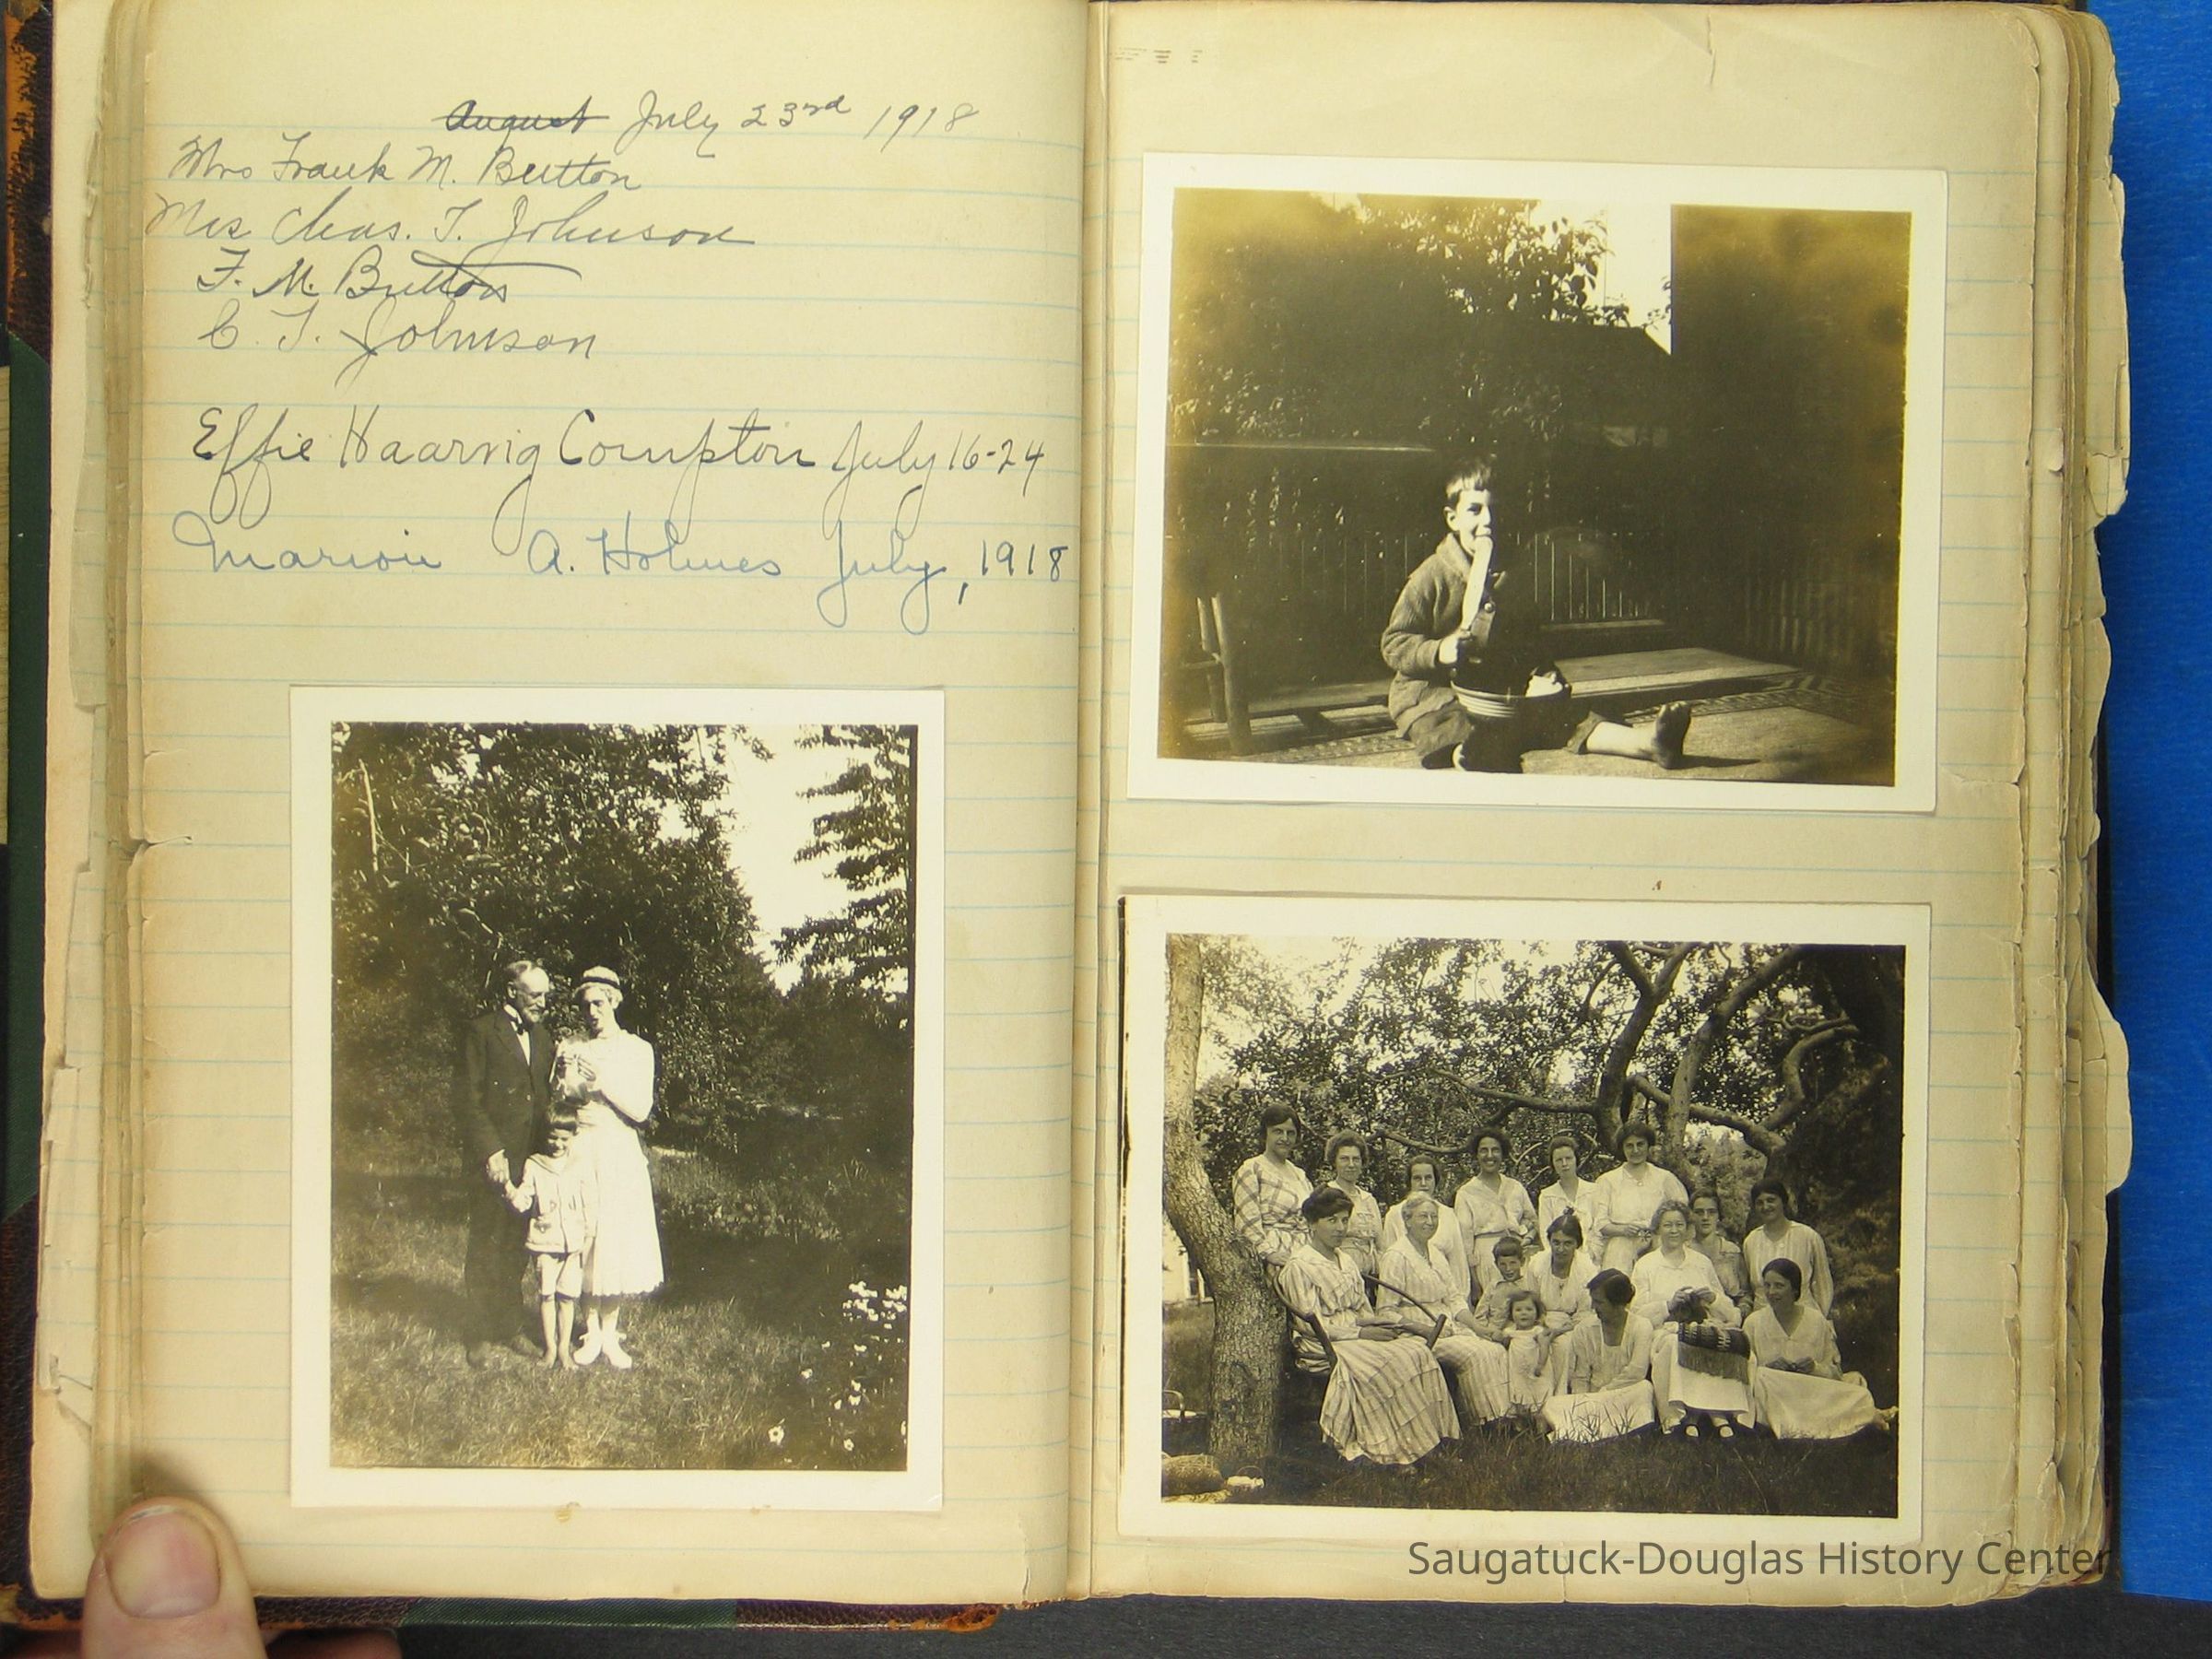 August July 23rd 1918
Mrs Frank M. Button
Mrs Chas. T. Johnson
F. M. Button
C. T. Johnson
Effie Haarvig Compton July 16-24
Marion A. Holmes July, 1918
Saugatuck-Douglas History Center